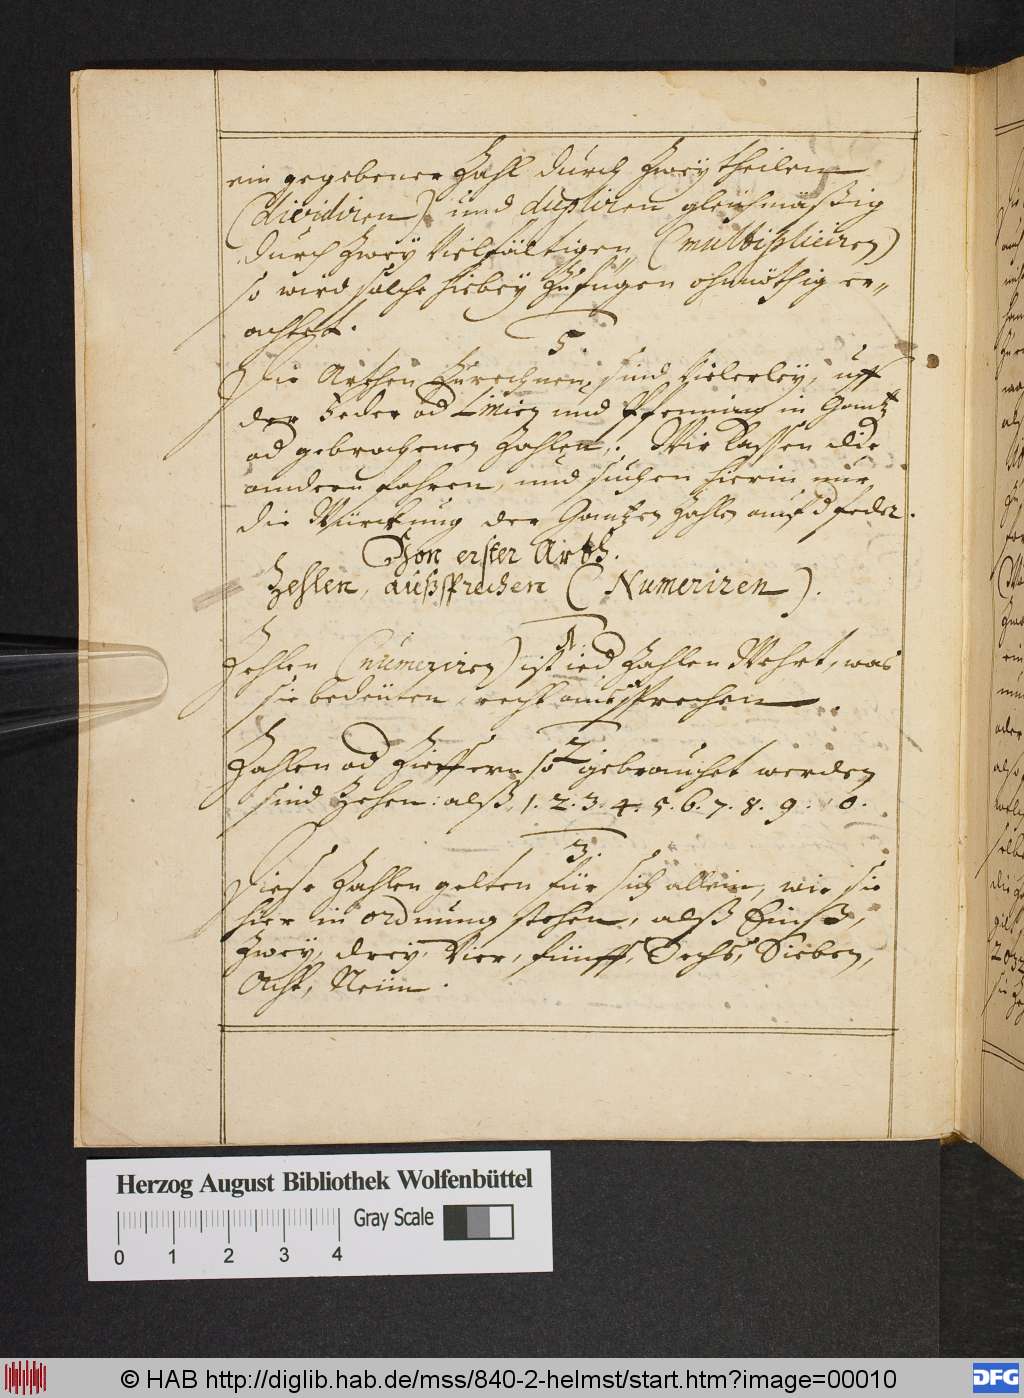 ein gegebener Zahl durch Zwey theilen
(dividiren) und dupliren gleichmäßig
durch Zwey Vielfältigen (multipliciren)
so wird solche hiebey Zufügen ohnnöthig er„
achtet.
5
Die Arthen Zurechnen, sind Vielerley, uff
der Feder od Linien und Pfenning in Gantz
od gebrochenen Zahlen. Wir lassen die
andern fahren, und suchen hierin nur
die Würckung der Gantzen Zahlen auf d feder.
Von erster Arth.
Zehlen, außsprechen (Numeriren).
1
Zehlen (numeriren) ist ied Zahlen Wehrt, was
sie bedeuten, recht aussprechen.
2
Zahlen od Zieffern so gebrauchet werden
sind Zehen: alß, 1. 2. 3. 4. 5. 6. 7. 8. 9. 0.
3.
Diese Zahlen gelten für sich allein, wie sie
hier in ordnung stehen, alß Einß,
Zwey, drey, Vier, fünff, Sechs, Sieben,
Acht, Neün.
Herzog August Bibliothek Wolfenbüttel
Gray Scale
0 1 2 3 4
© HAB http://diglib.hab.de/mss/840-2-helmst/start.htm?image=00010
DFG